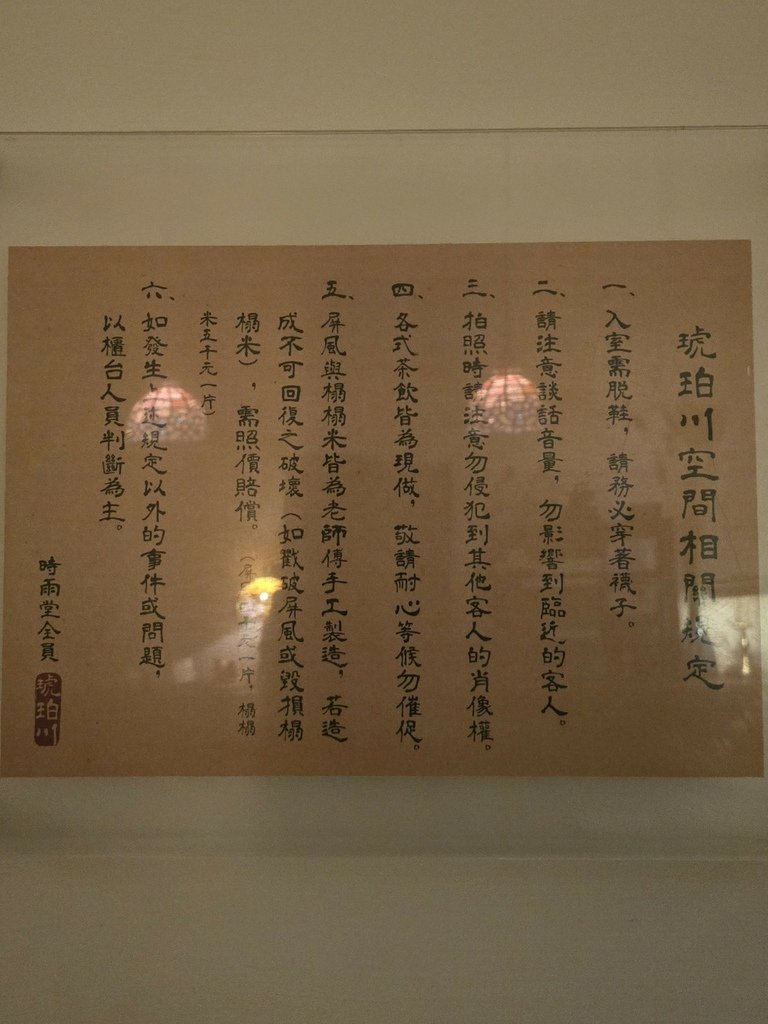 琥珀川空間相關規定
一、入室需脫鞋，請務必穿著襪子。
二、請注意談話音量，勿影響到臨近的客人。
三、拍照時請注意勿侵犯到其他客人的肖像權。
四、各式茶飲皆為現做，敬請耐心等候勿催促。
五、屏風與榻榻米皆為老師傅手工製造，若造
成不可回復之破壞（如戳破屏風或毀損榻
榻米），需照價賠償。（屏 千元一片，榻榻
米五千元一片）
六、如發生上述規定以外的事件或問題，
以櫃台人員判斷為主。
時雨堂全員
琥珀川